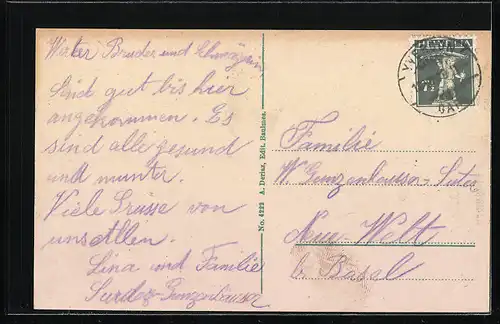 Werter Bruder und Schwägerin
Sind gut bis hier
angekommen. Es
sind alle gesund
und munter.
Viele Grüsse von
uns Allen.
Lina und Familie
Surdez-Gunzenhauser
No. 4222 A. Deriaz, Edit. Baulmes.
HELVETIA
Familie
W. Gunzenhauser-Suter
Neue Welt
b. Basel